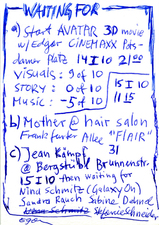 WAITING FOR
a) Start AVATAR 3D movie
w/Edgar CINEMAXX Pots-
damer Platz 14 I 10 21 00
Visuals: 9 of 10
STORY: 0 of 10 15 I 10
Music: -5 of 10 11 15
b) Mother @ hair salon
Frankfurter Allee "FLAIR"
31
c) Jean Kämpf
@ Bergstübl Brunnenstr.
15 I 10 then waiting for
Nina Schmitz (Galaxy On)
Sandra Rauch Sabine
Schmitz Stefanie Schneider